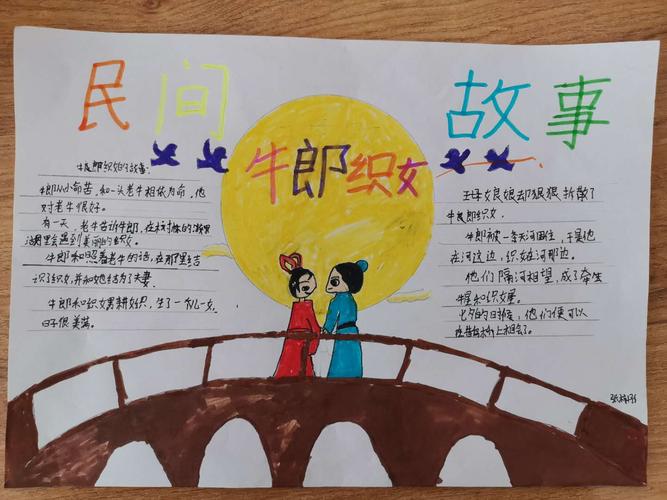 民间故事
牛郎织女
牛郎织女的故事
牛郎从小命苦，和一头老牛相依为命，他
对老牛很好。
有一天，老牛告诉牛郎，在村东的
湖里会遇到美丽的织女。
牛郎和照着老牛的话，在那里结
识了织女，并和她结为了夫妻
牛郎和织女男耕女织，生了一儿一女，
日子很美满。
王母娘娘却狠狠拆散了
牛郎织女。
牛郎被一条天河围住，于是他
在河这边，织女在河那边。
他们隔河相望，成了牵牛
星和织女星。
七夕的日时候，他们便可以
在鹊桥上相会了。
张